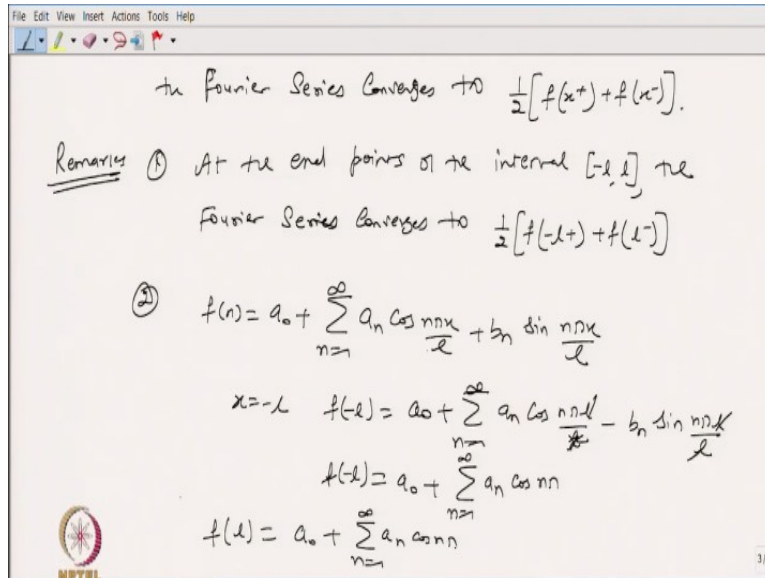 File Edit View Insert Actions Tools Help
the Fourier Series Converges to 1/2 [f(x⁺) + f(x⁻)].
Remarks ① At the end points of the interval [-l, l], the
Fourier Series Converges to 1/2 [f(-l+) + f(l-)]
② f(x) = a₀ + ∑_{n=1}^{∞} aₙ cos nπx/l + bₙ sin nπx/l
x=-l f(-l) = a₀ + ∑_{n=1}^{∞} aₙ cos nπl/l - bₙ sin nπl/l
f(-l) = a₀ + ∑_{n=1}^{∞} aₙ cos nπ
f(l) = a₀ + ∑_{n=1}^{∞} aₙ cos nπ
NPTEL
3/